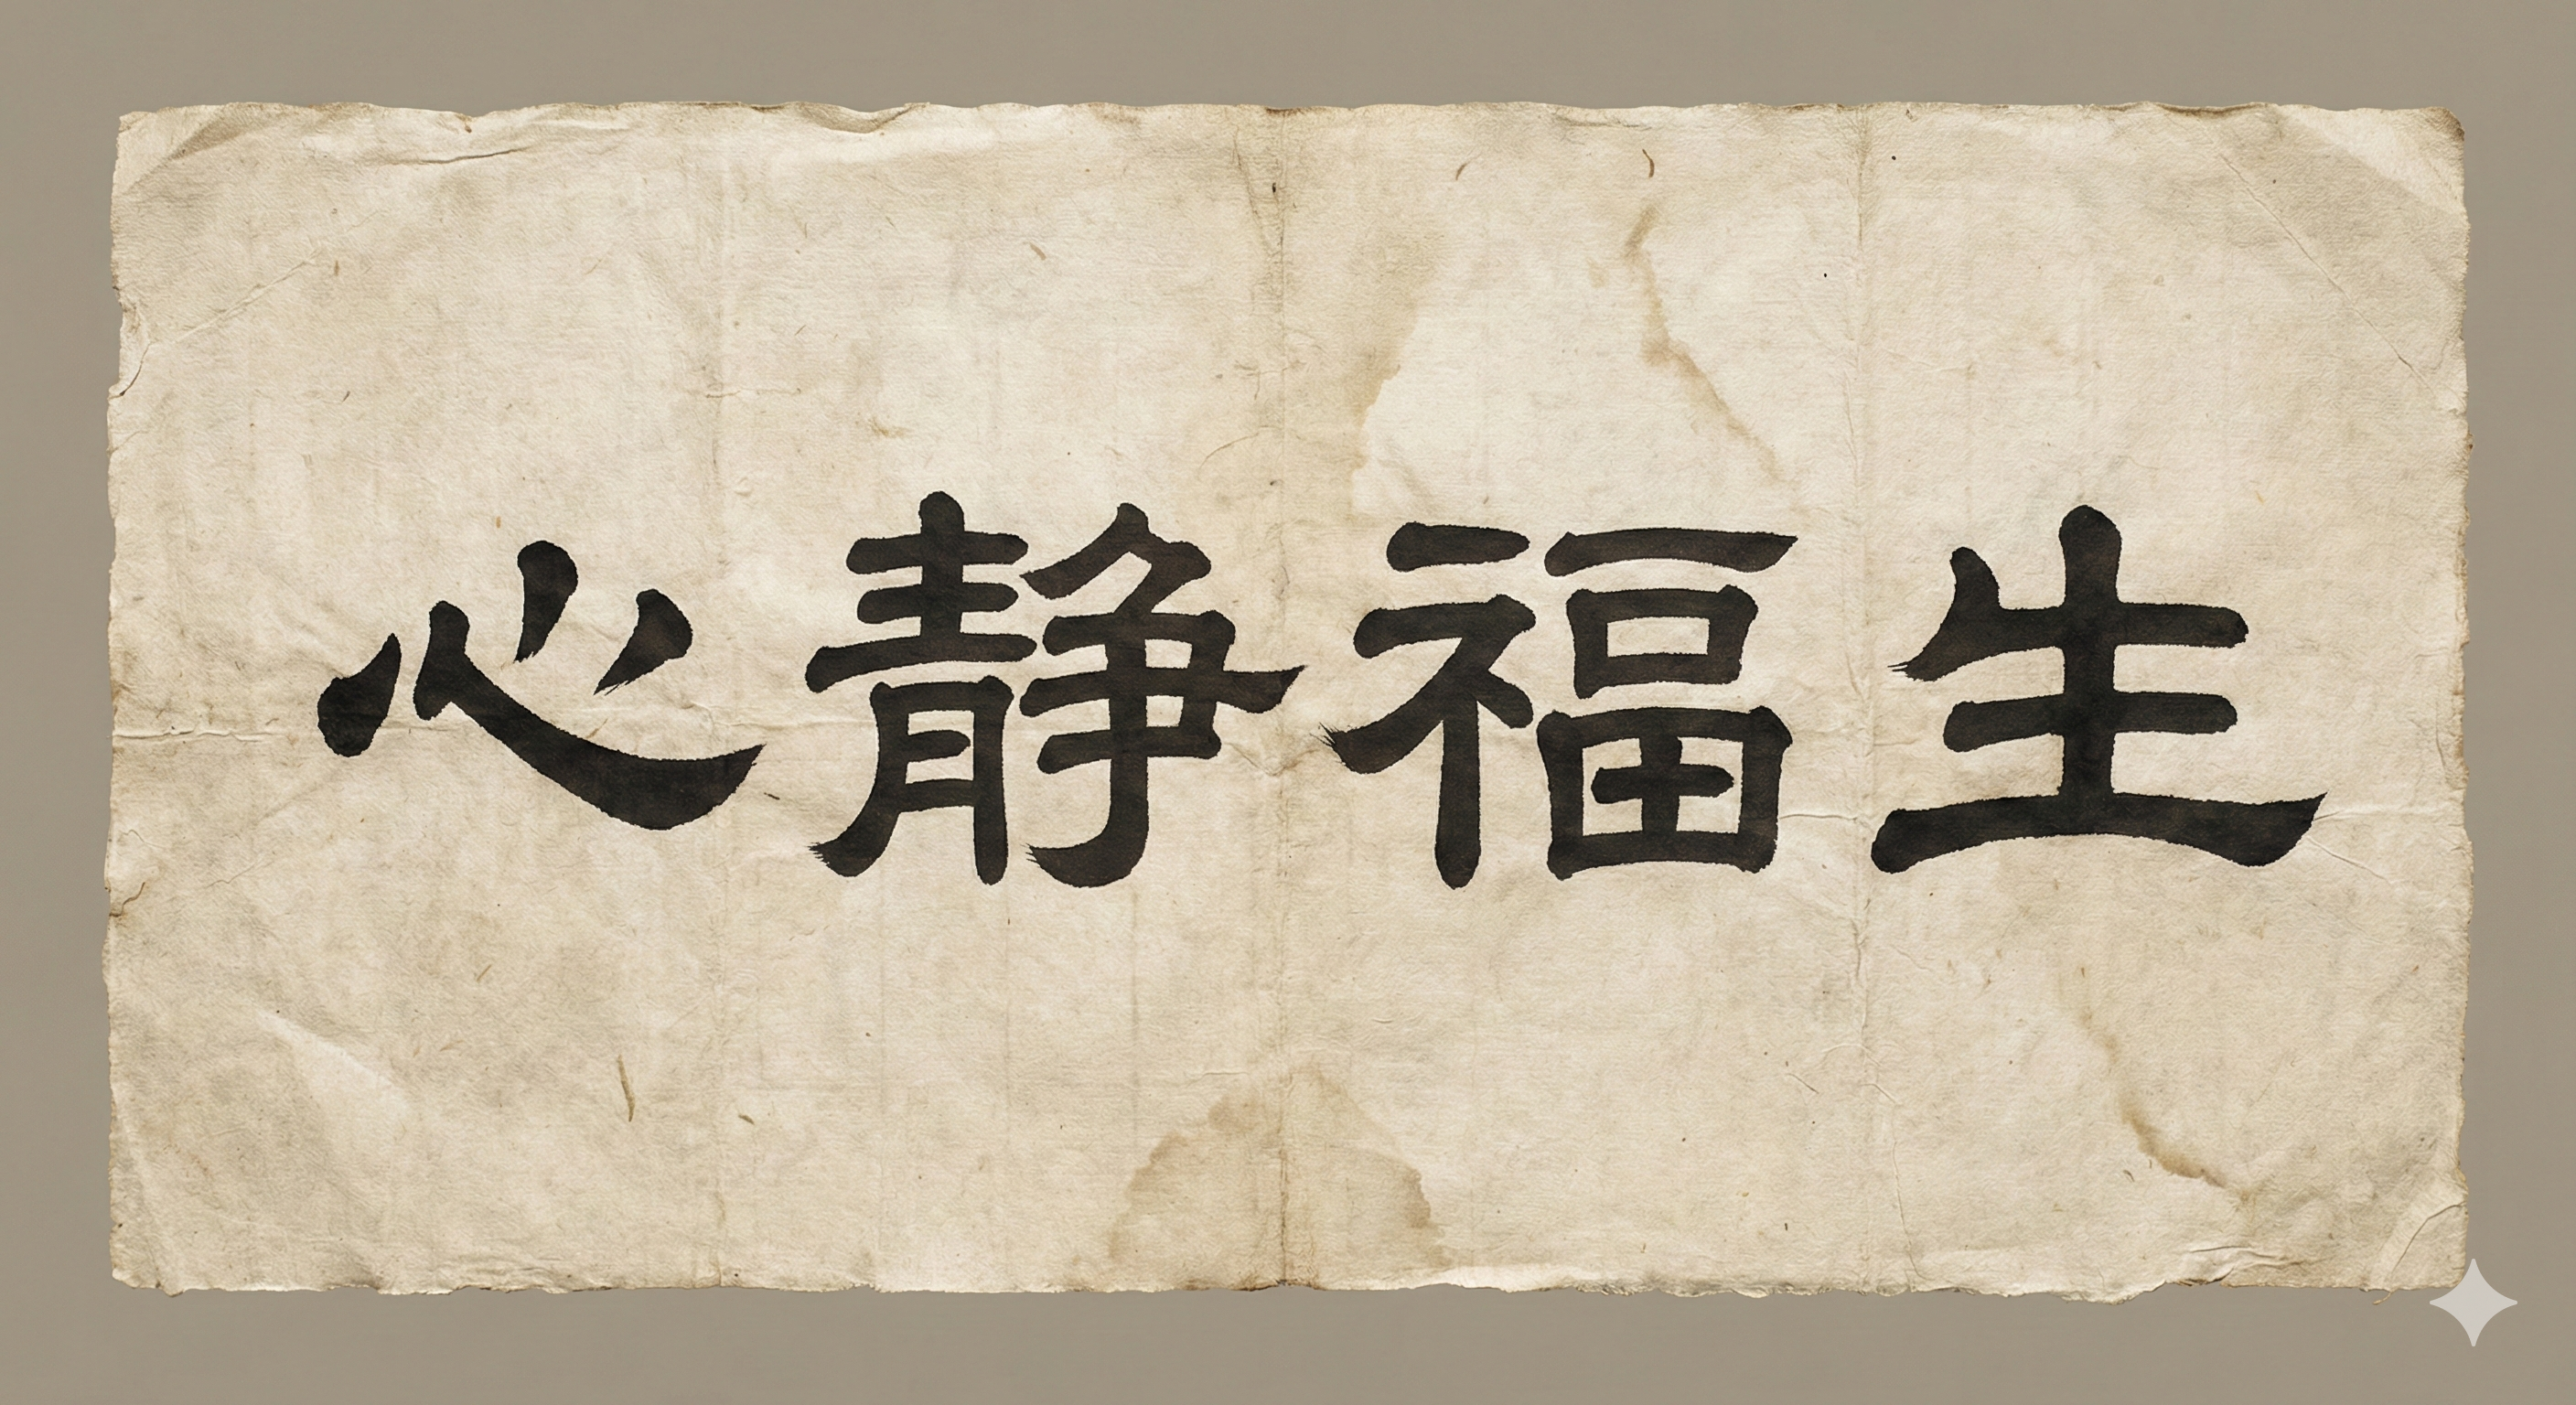 心静福生